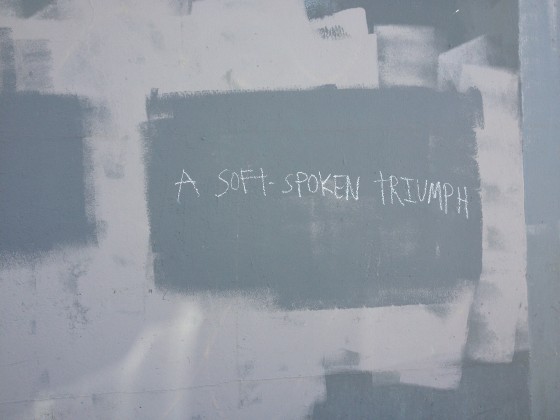 A SOFT-SPOKEN TRIUMPH